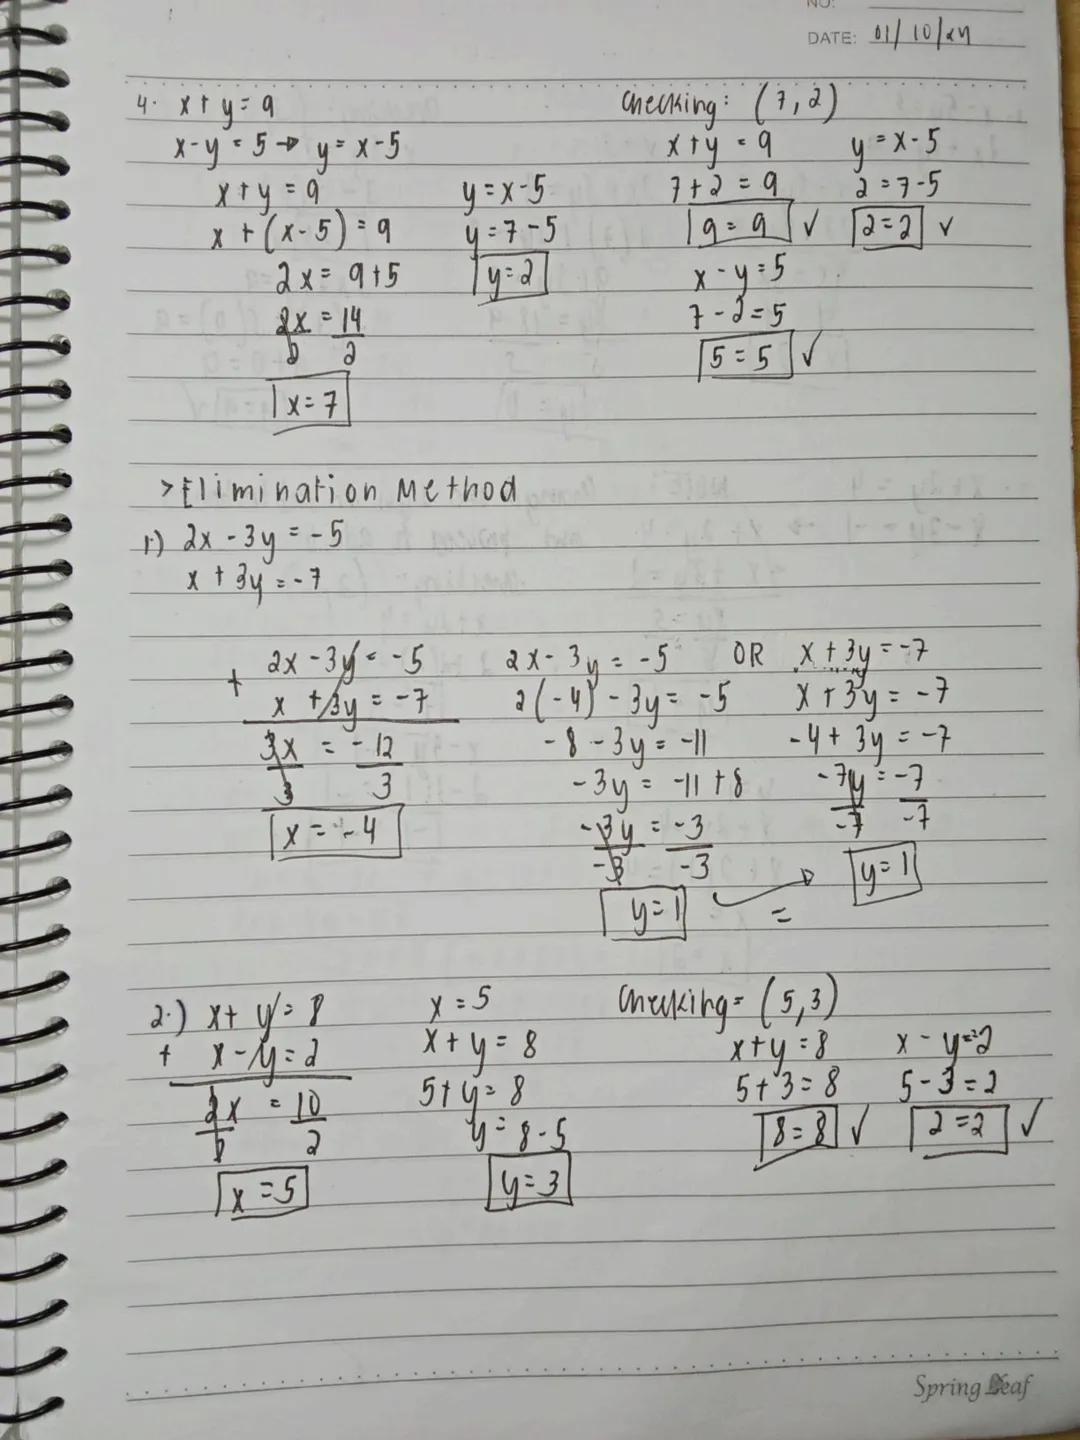 NO:
DATE: 01/10/24
4. x + y = 9
x - y = 5 → y = x - 5
x + y = 9
x + (x - 5) = 9
2x = 9 + 5
2x = 14
2 2
x = 7
y = x - 5
y = 7 - 5
y = 2
Checking: (7, 2)
x + y = 9
7 + 2 = 9
9 = 9 ✓
y = x - 5
2 = 7 - 5
2 = 2 ✓
x - y = 5
7 - 2 = 5
5 = 5 ✓
> Elimination Method
1.) 2x - 3y = -5
x + 3y = -7
2x - 3y = -5
+ x + 3y = -7
3x = -12
3 3
x = -4
2x - 3y = -5
2(-4) - 3y = -5
-8 - 3y = -11
-3y = -11 + 8
-3y = -3
-3 -3
y = 1
OR
x + 3y = -7
x + 3y = -7
-4 + 3y = -7
-7y = -7
-7 -7
y = 1
=
2.) x + y = 8
+ x - y = 2
2x = 10
2 2
x = 5
x = 5
x + y = 8
5 + y = 8
y = 8 - 5
y = 3
Checking = (5, 3)
x + y = 8
5 + 3 = 8
8 = 8 ✓
x - y = 2
5 - 3 = 2
2 = 2 ✓
Spring Leaf